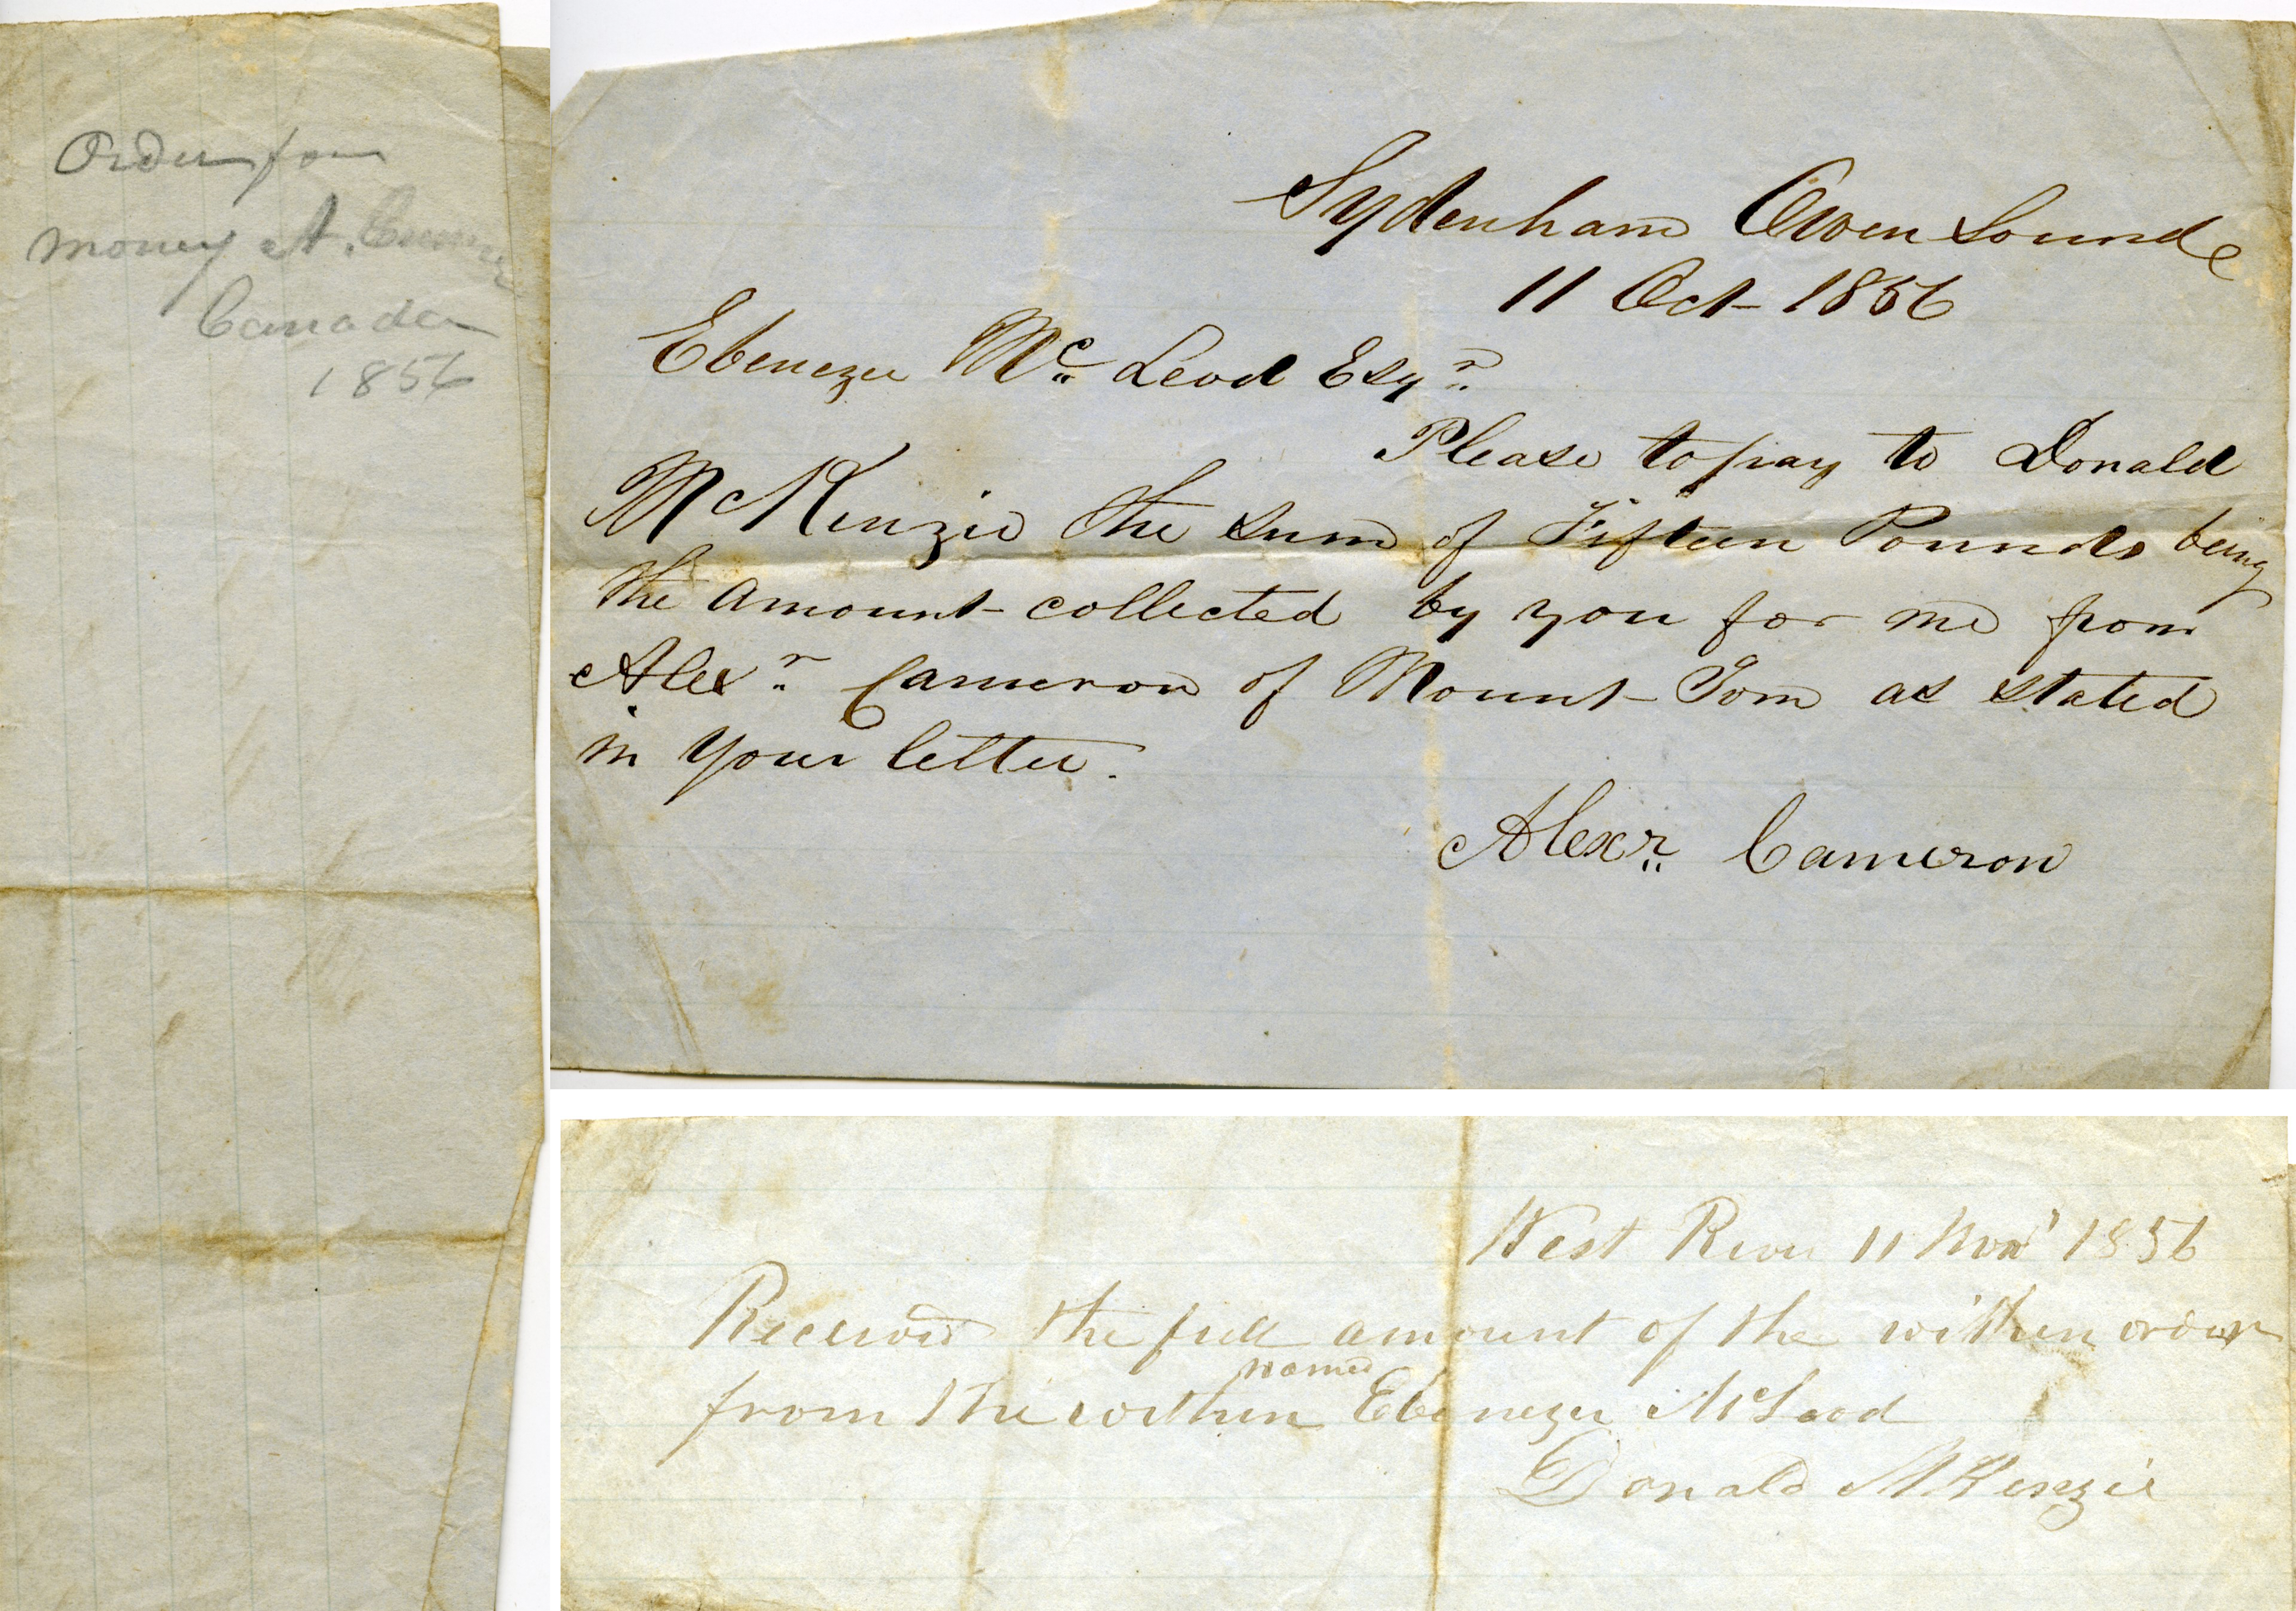 Order for
money A.
Canada
1856
Sydenham Owen Sound
11 Oct 1856
Ebenezer Mc Leod Esqr
Please to pay to Donald
McKenzie the sum of Fifteen Pounds being
the amount collected by you for me from
Alexr Cameron of Mount Tom as stated
in your letter.
Alexr Cameron
West River 11 Novr 1856
Received the full amount of the within order
from the within named Ebenezer McLeod
Donald McKenzie